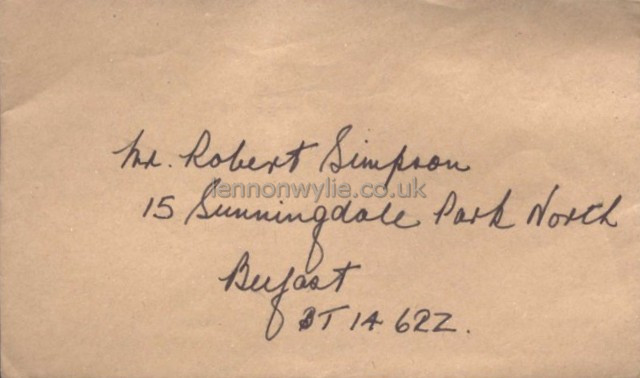 Mr. Robert Simpson
lennonwylie.co.uk
15 Sunningdale Park North
Belfast
BT 14 6RZ.